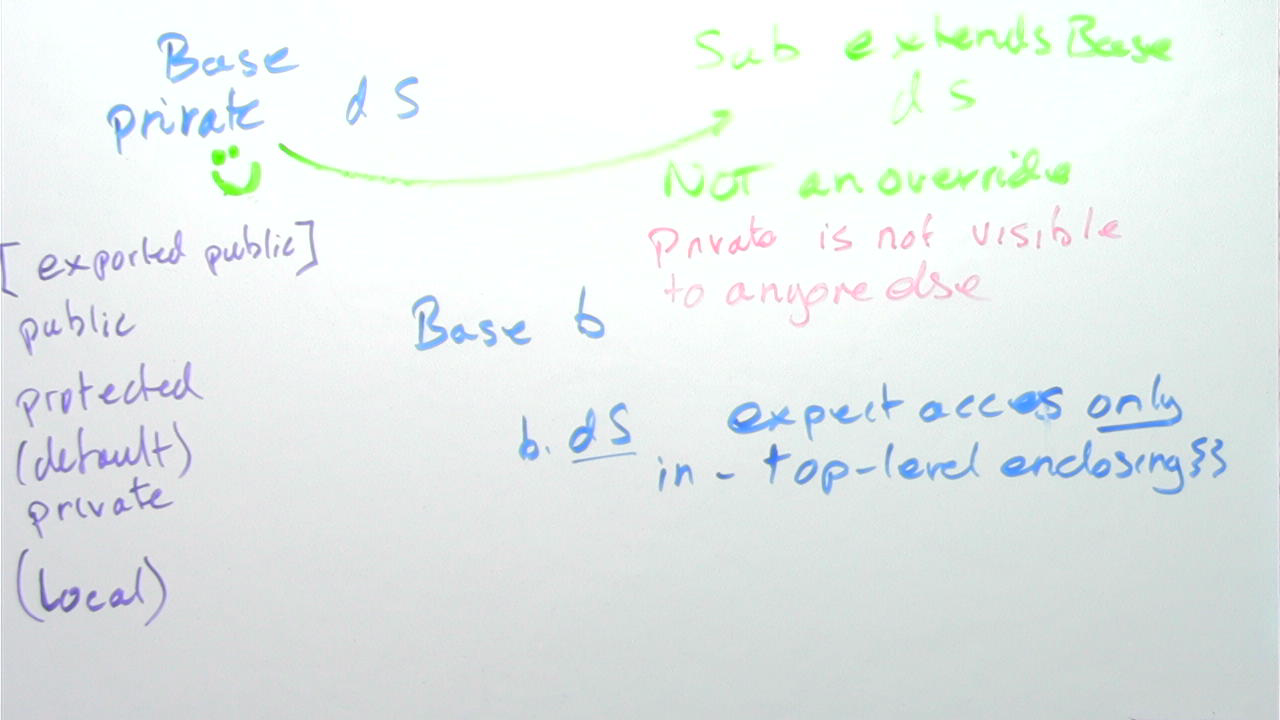 Base
private dS
Sub extends Base
dS
NOT an override
Private is not visible
to anyone else
[exported public]
public
protected
(default)
private
(local)
Base b
b.dS expect access only
in - top-level enclosing {}